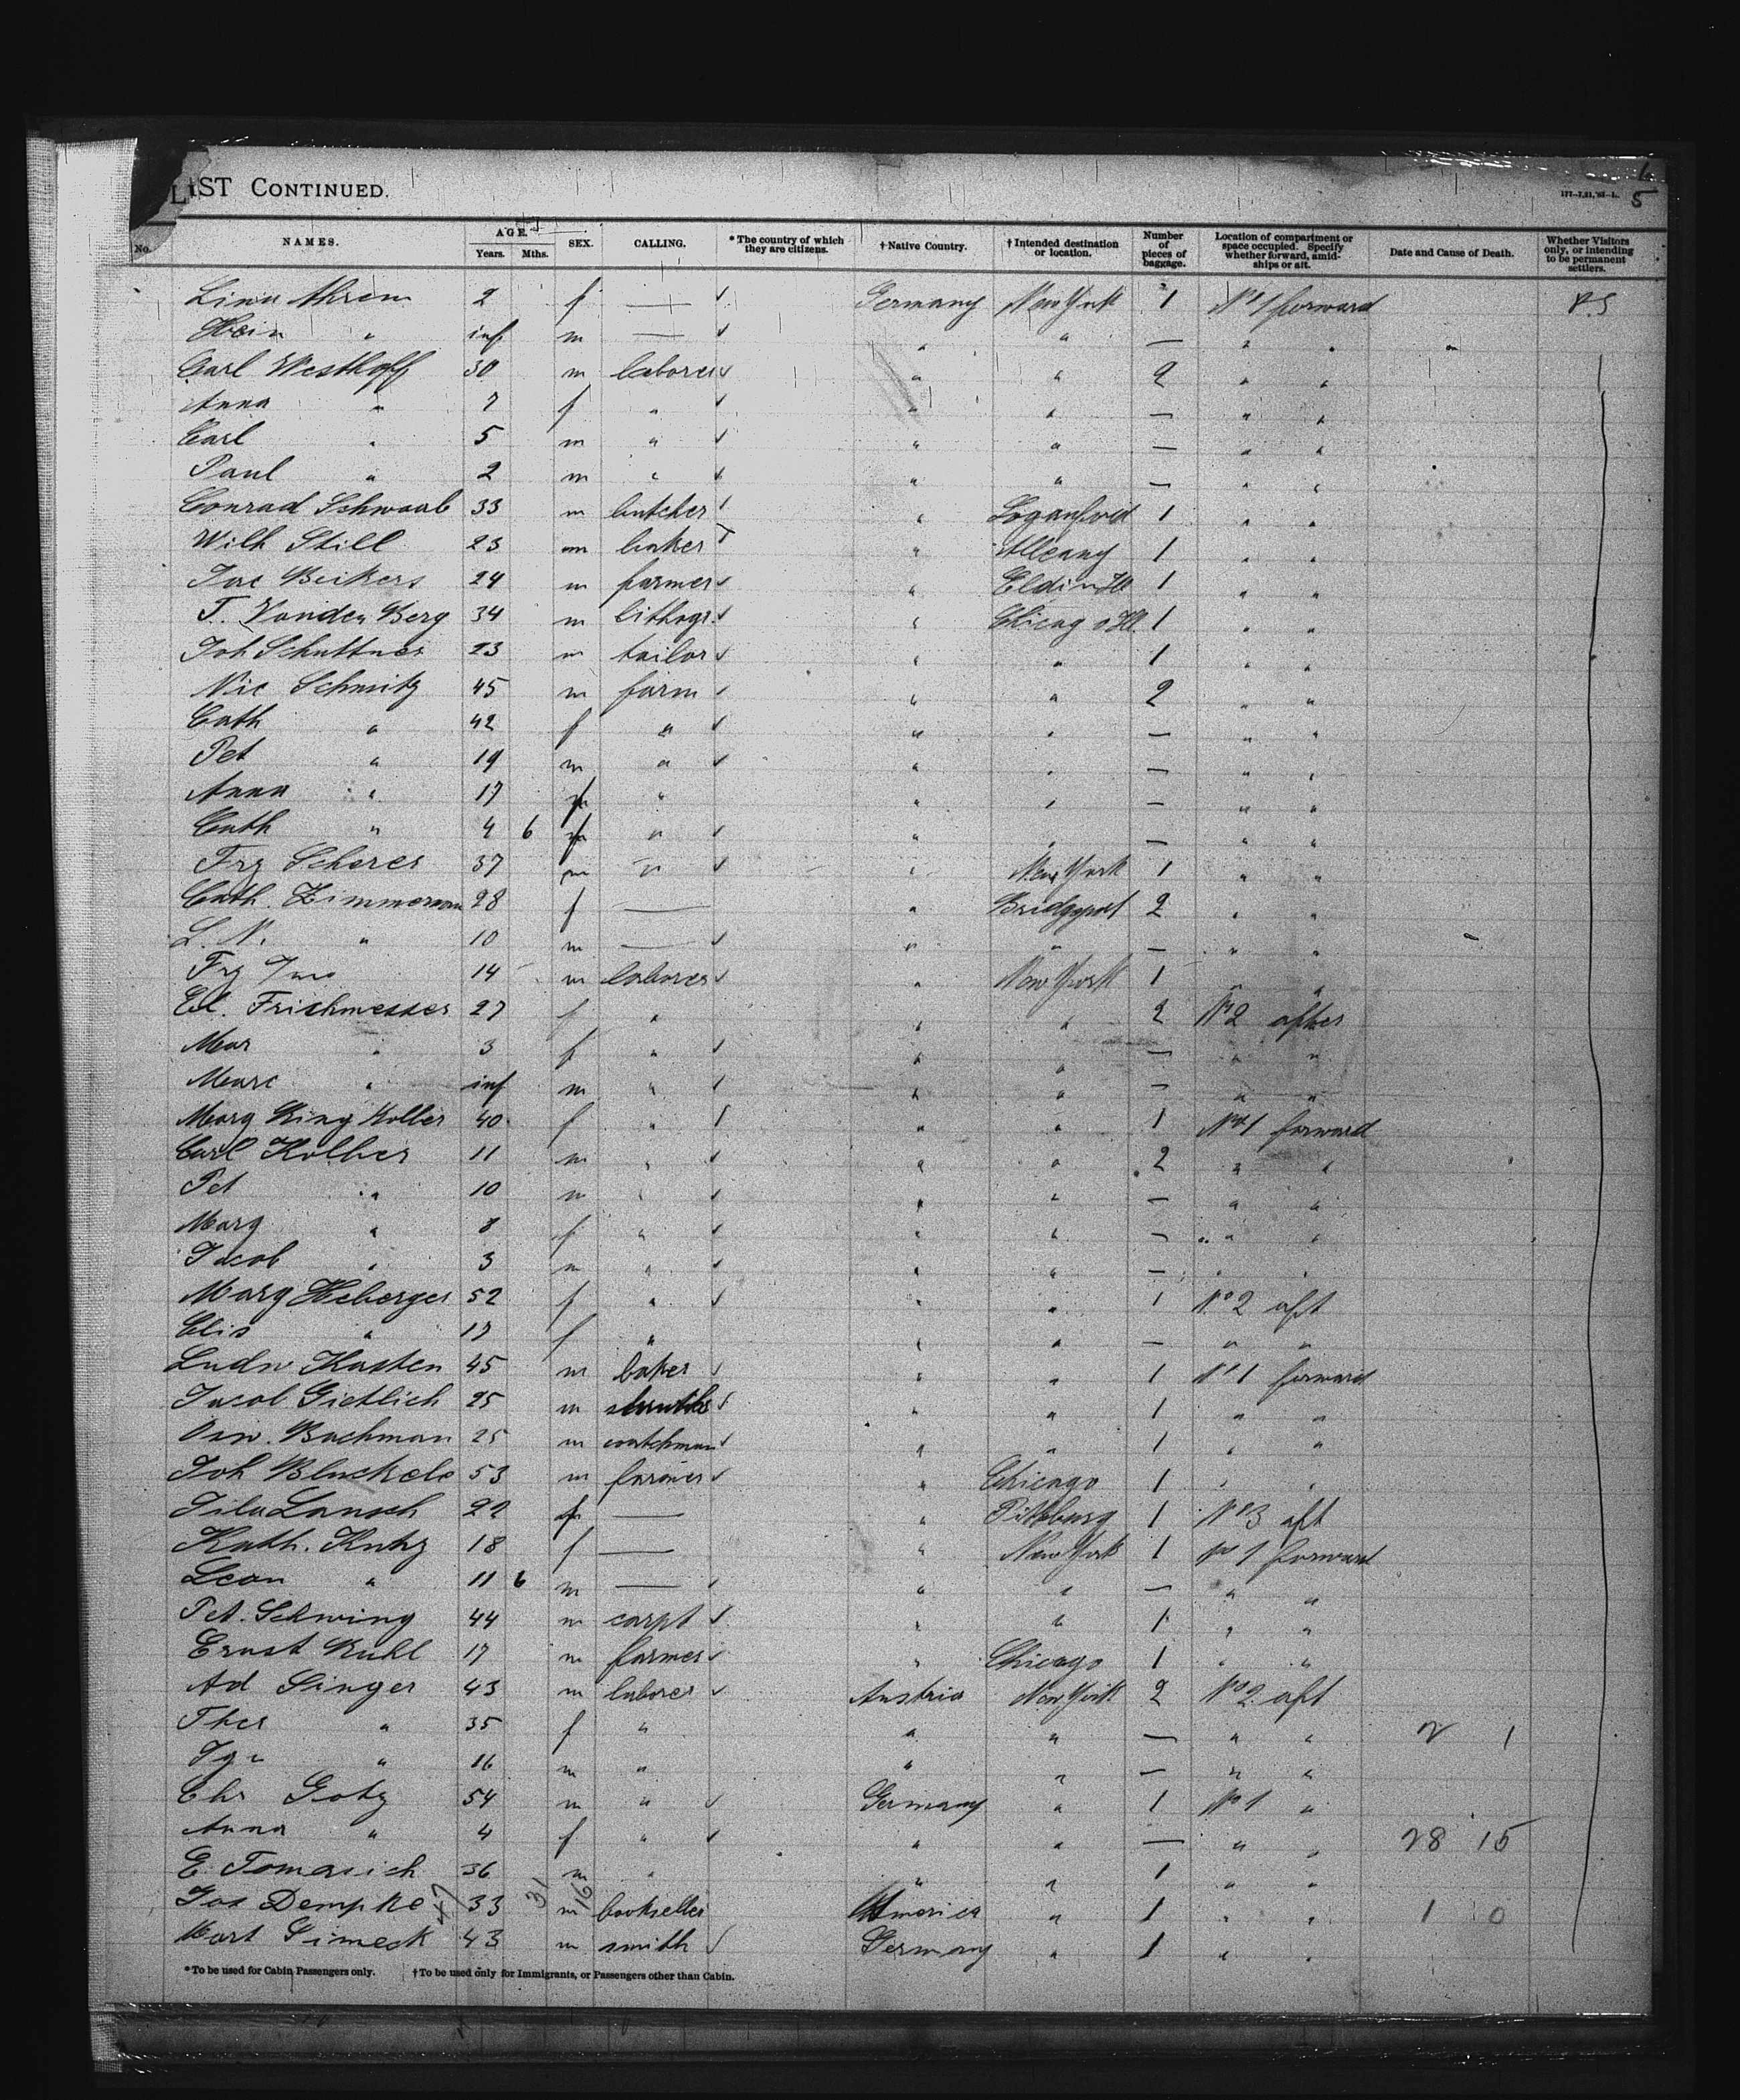 LIST CONTINUED.
177-7,21,'91-L. 5
No. NAMES. AGE. Years. Mths. SEX. CALLING. *The country of which they are citizens. †Native Country. †Intended destination or location. Number of pieces of baggage. Location of compartment or space occupied. Specify whether forward, amidships or aft. Date and Cause of Death. Whether Visitors only, or intending to be permanent settlers.
Lina Ahrem 2 f — Germany New York 1 No 1 forward P.S
Hein " inf m — " " — " "
Carl Westhoff 30 m laborer " " 2 " "
Anna " 7 f " " " — " "
Carl " 5 m " " " — " "
Paul " 2 m " " " — " "
Conrad Schwaab 33 m butcher " 1 " "
Wilh Still 23 m baker " 1 " "
Jac Beikers 24 m farmer " 1 " "
T. Vanden Berg 34 m lithogr. " Chicago Ill. 1 " "
Joh Schuttner 23 m tailor " " 1 " "
Nic Schmitz 45 m farm " " 2 " "
Cath " 42 f " " " — " "
Pet " 19 m " " " — " "
Anna " 17 f " " " — " "
Cath " 4 6 f " " " — " "
Frz Scherer 37 m " " New York 1 " "
Cath. Zimmerman 28 f — " Bridgeport 2 " "
L. N. " 10 m — " " — " "
Frz 14 m laborer " New York 1 " "
El. Frischmesser 27 f " " " 2 No 2 after
Mar " 3 f " " " — " "
Marc " inf m " " " — " "
Marg King Koller 40 f " " " 1 No 1 forward
Carl Kolber 11 m " " " 2 " "
Pet " 10 m " " " — " "
Marg " 8 f " " " — " "
Jacob " 3 m " " " — " "
Marg Heberger 52 f " " " 1 No 2 aft
Elis " 17 f " " " — " "
Ludw Kasten 45 m baker " " 1 No 1 forward
Jacob Gietlich 25 m " " 1 " "
Osw. Bachman 25 m watchman " " 1 " "
Joh 53 m farmer " Chicago 1 " "
Lansch 22 f — " Pittsburg 1 No 3 aft
Kath. Kutz 18 f — " New York 1 No 1 forward
Leon " 11 6 m — " " — " "
Pet. Schwing 44 m carpt " " 1 " "
Ernst Kuhl 17 m farmer " Chicago 1 " "
Ad Singer 43 m laborer Austria New York 2 No 2 aft
Ther " 35 f " " " — " " 2 1
" 16 m " " " — " "
Chr Gotz 54 m " Germany " 1 No 1 "
Anna " 4 f " " " — " " 28 15
E. Tomasich 36 m " " " 1 " "
Jos Dempke 47 33 31 16 m bookseller America " 1 " " 1 0
Mart Simeck 43 m smith Germany " 1 " "
*To be used for Cabin Passengers only. †To be used only for Immigrants, or Passengers other than Cabin.